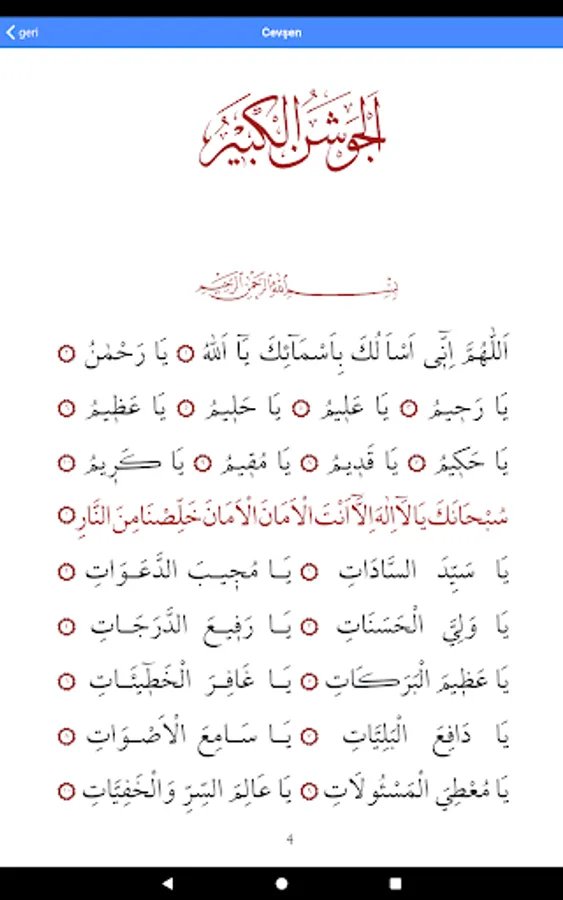 geri
Cevşen
اَلْجَوْشَنُ الْكَبِيْرُ
بِسْمِ اللّٰهِ الرَّحْمٰنِ الرَّحِيمِ
اَللّٰهُمَّ اِنِّٓى اَسْاَلُكَ بِاَسْمَٓائِكَ يَٓا اَللّٰهُ ۞ يَا رَحْمٰنُ ۞
يَا رَحِيمُ ۞ يَا عَلِيمُ ۞ يَا حَلِيمُ ۞ يَا عَظِيمُ ۞
يَا حَكِيمُ ۞ يَا قَدِيمُ ۞ يَا مُقِيمُ ۞ يَا كَرِيمُ ۞
سُبْحَانَكَ يَا لَٓا اِلٰهَ اِلَّٓا اَنْتَ الْاَمَانَ الْاَمَانَ خَلِّصْنَا مِنَ النَّارِ ۞
يَا سَيِّدَ السَّادَاتِ ۞ يَا مُجِيبَ الدَّعَوَاتِ ۞
يَا وَلِيَّ الْحَسَنَاتِ ۞ يَا رَفِيعَ الدَّرَجَاتِ ۞
يَا عَظِيمَ الْبَرَكَاتِ ۞ يَا غَافِرَ الْخَطِٓيئَاتِ ۞
يَا دَافِعَ الْبَلِيَّاتِ ۞ يَا سَامِعَ الْاَصْوَاتِ ۞
يَا مُعْطِيَ الْمَسْئُولَاتِ ۞ يَا عَالِمَ السِّرِّ وَالْخَفِيَّاتِ ۞
4